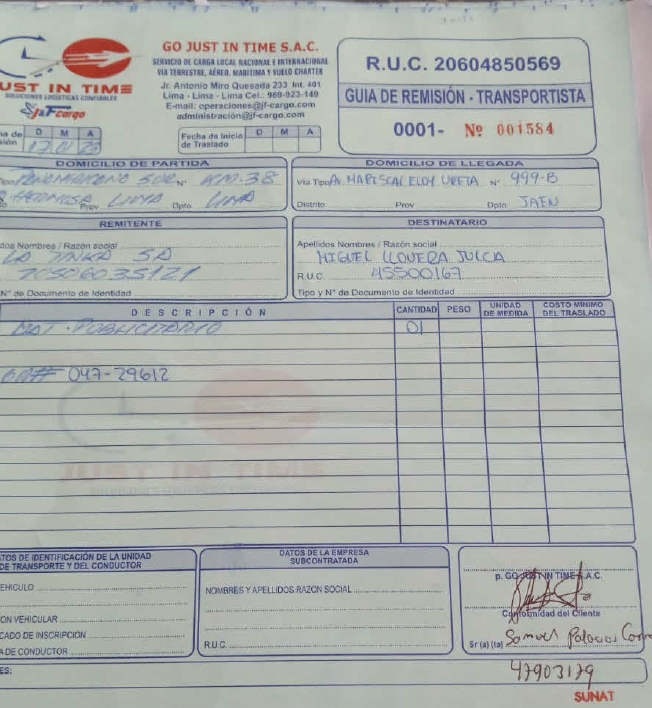 GO JUST IN TIME S.A.C.
SERVICIO DE CARGA LOCAL NACIONAL E INTERNACIONAL
VIA TERRESTRE, AÉREO, MARITIMA Y VUELO CHARTER
Jr. Antonio Miro Quesada 233 Int. 401
Lima - Lima - Lima Cel.: 989-923-149
E-mail: operaciones@jf-cargo.com
administración@jf-cargo.com
UST IN TIME
SOLUCIONES LOGISTICAS CONFIABLES
J&F cargo
R.U.C. 20604850569
GUIA DE REMISIÓN - TRANSPORTISTA
0001- Nº 001584
D M A
Fecha de Inicio de Traslado D M A
DOMICILIO DE PARTIDA
SUR Nº KM. 38
Prov. LIMA Dpto. LIMA
DOMICILIO DE LLEGADA
Vía Tipo AV MARISCAL ELOY URETA Nº 999-B
Distrito Prov Dpto. JAEN
REMITENTE
dos Nombres / Razón social
LA SA
Nº de Documento de Identidad
DESTINATARIO
Apellidos Nombres / Razón social
MIGUEL LLOVERA JULCA
R.U.C. 45500167
Tipo y Nº de Documento de Identidad
DESCRIPCIÓN CANTIDAD PESO UNIDAD DE MEDIDA COSTO MINIMO DEL TRASLADO
MAT. PUBLICITARIO 01
047-29612
JUST IN TIME
TOS DE IDENTIFICACIÓN DE LA UNIDAD
DE TRANSPORTE Y DEL CONDUCTOR
EHICULO
ON VEHICULAR
CADO DE INSCRIPCION
A DE CONDUCTOR
DATOS DE LA EMPRESA
SUBCONTRATADA
NOMBRES Y APELLIDOS-RAZON SOCIAL
R.U.C.
p. GO JUST IN TIME S.A.C.
Conformidad del Cliente
Sr (a) (ta) Samuel Palacios
47903179
ES:
SUNAT